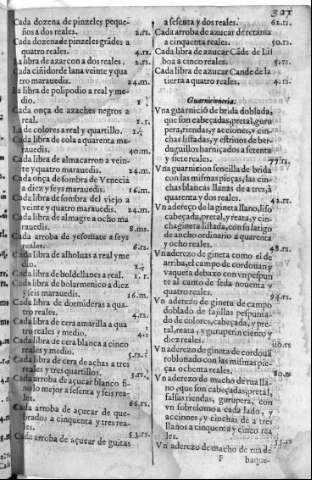 321
Cada dozena de pinzeles peque-
ños a dos reales. 2.rs.
Cada dozena de pinzeles grãdes a
quatro reales. 4.rs.
La libra de azarcon a dos reales. 2.rs.
Cada ciñidor de lana veinte y qua
tro marauedis. 24.m.
La libra de polipodio a real y me-
dio.
Cada onça de azaches negros a
real. 1.r.
La de colores a real y quartillo.
Cada libra de cola a quarenta ma-
rauedis. 40.m.
Cada libra de almacarron a vein-
te y quatro marauedis. 24.m.
Cada onça de sombra de Venecia
a diez y seys marauedis. 16.m.
Cada libra de sombra del viejo a
veinte y quatro marauedis. 24.m.
Cada libra de almagre a ocho ma
rauedis. 8.ms.
Cada arroba de yesomate a seys
reales. 6.rs.
Cada libra de alholuas a real y me
dio.
Cada libra de bol de llanes a real. 1.r.
Cada libra de bolarmenico a diez
y seis marauedis. 16.m.
Cada libra de dormideras a qua-
tro reales. 4.rs.
Cada libra de cera amarilla a qua
tro reales y medio.
Cada libra de cera blanca a cinco
reales y medio.
Cada libra de cera de achas a tres
reales y tres quartillos.
Cada arroba de açucar blanco fi-
no lo mejor a sesenta y seis rea-
les. 66.rs.
Cada arroba de açucar de que-
brados a cinquenta y tres rea-
les. 53.rs.
Cada arroba de açucar de guitas
a sesenta y dos reales. 62.rs.
Cada arroba de azucar de retama
a cinquenta reales. 50.rs.
Cada libra de azucar Cãde de Lis
boa a cinco reales. 5.rs.
Cada libra de azucar Cande de la
tierra a quatro reales. 4.rs.
Guarnicioneria.
Vna guarniciõ de brida doblada,
que son cabeçadas, pretal, guru
pera, riendas, y acciones, y cin-
chas listadas, y estriuos de ber-
duguillo barniçados a setenta
y siete reales. 77.rs.
Vna guarnicion sencilla de brida
con las mismas pieças, las cin-
chas blancas llanas de a tres, à
quarenta y dos reales. 42.rs.
Vn adereço de la gineta llano, dso
cabeçada, pretal, y reata, y cin-
cha gineta listada, con su latigo
de ancho ordinario à quarenta
y ocho reales. 48.rs.
Vn aderezo de gineta como el de
arriba, de campo de cordouan y
vaqueta debaxo con vn pespun
te al canto de seda nouenta y
quatro reales. 94.rs.
Vn aderezo de gineta de campo
doblado de faxillas pespunta-
do de colores, cabeçada, y pre-
tal, reata, y gurupera en ciento y
diez reales. 110.rs
Vn aderezo de gineta de cordouã
ribeteado con las mismas pie-
ças ochenta reales. 80.rs.
Vn aderezo de macho de rua lla-
no, que son cabeçadas, pretal,
falsas riendas, gurupera, con
vn sobrelomo a cada lado, y
acciones, y cinchas de a tres
llanos a cinquenta y cinco rea
les. 55.rs.
Vn aderezo de macho de rua de
baque-